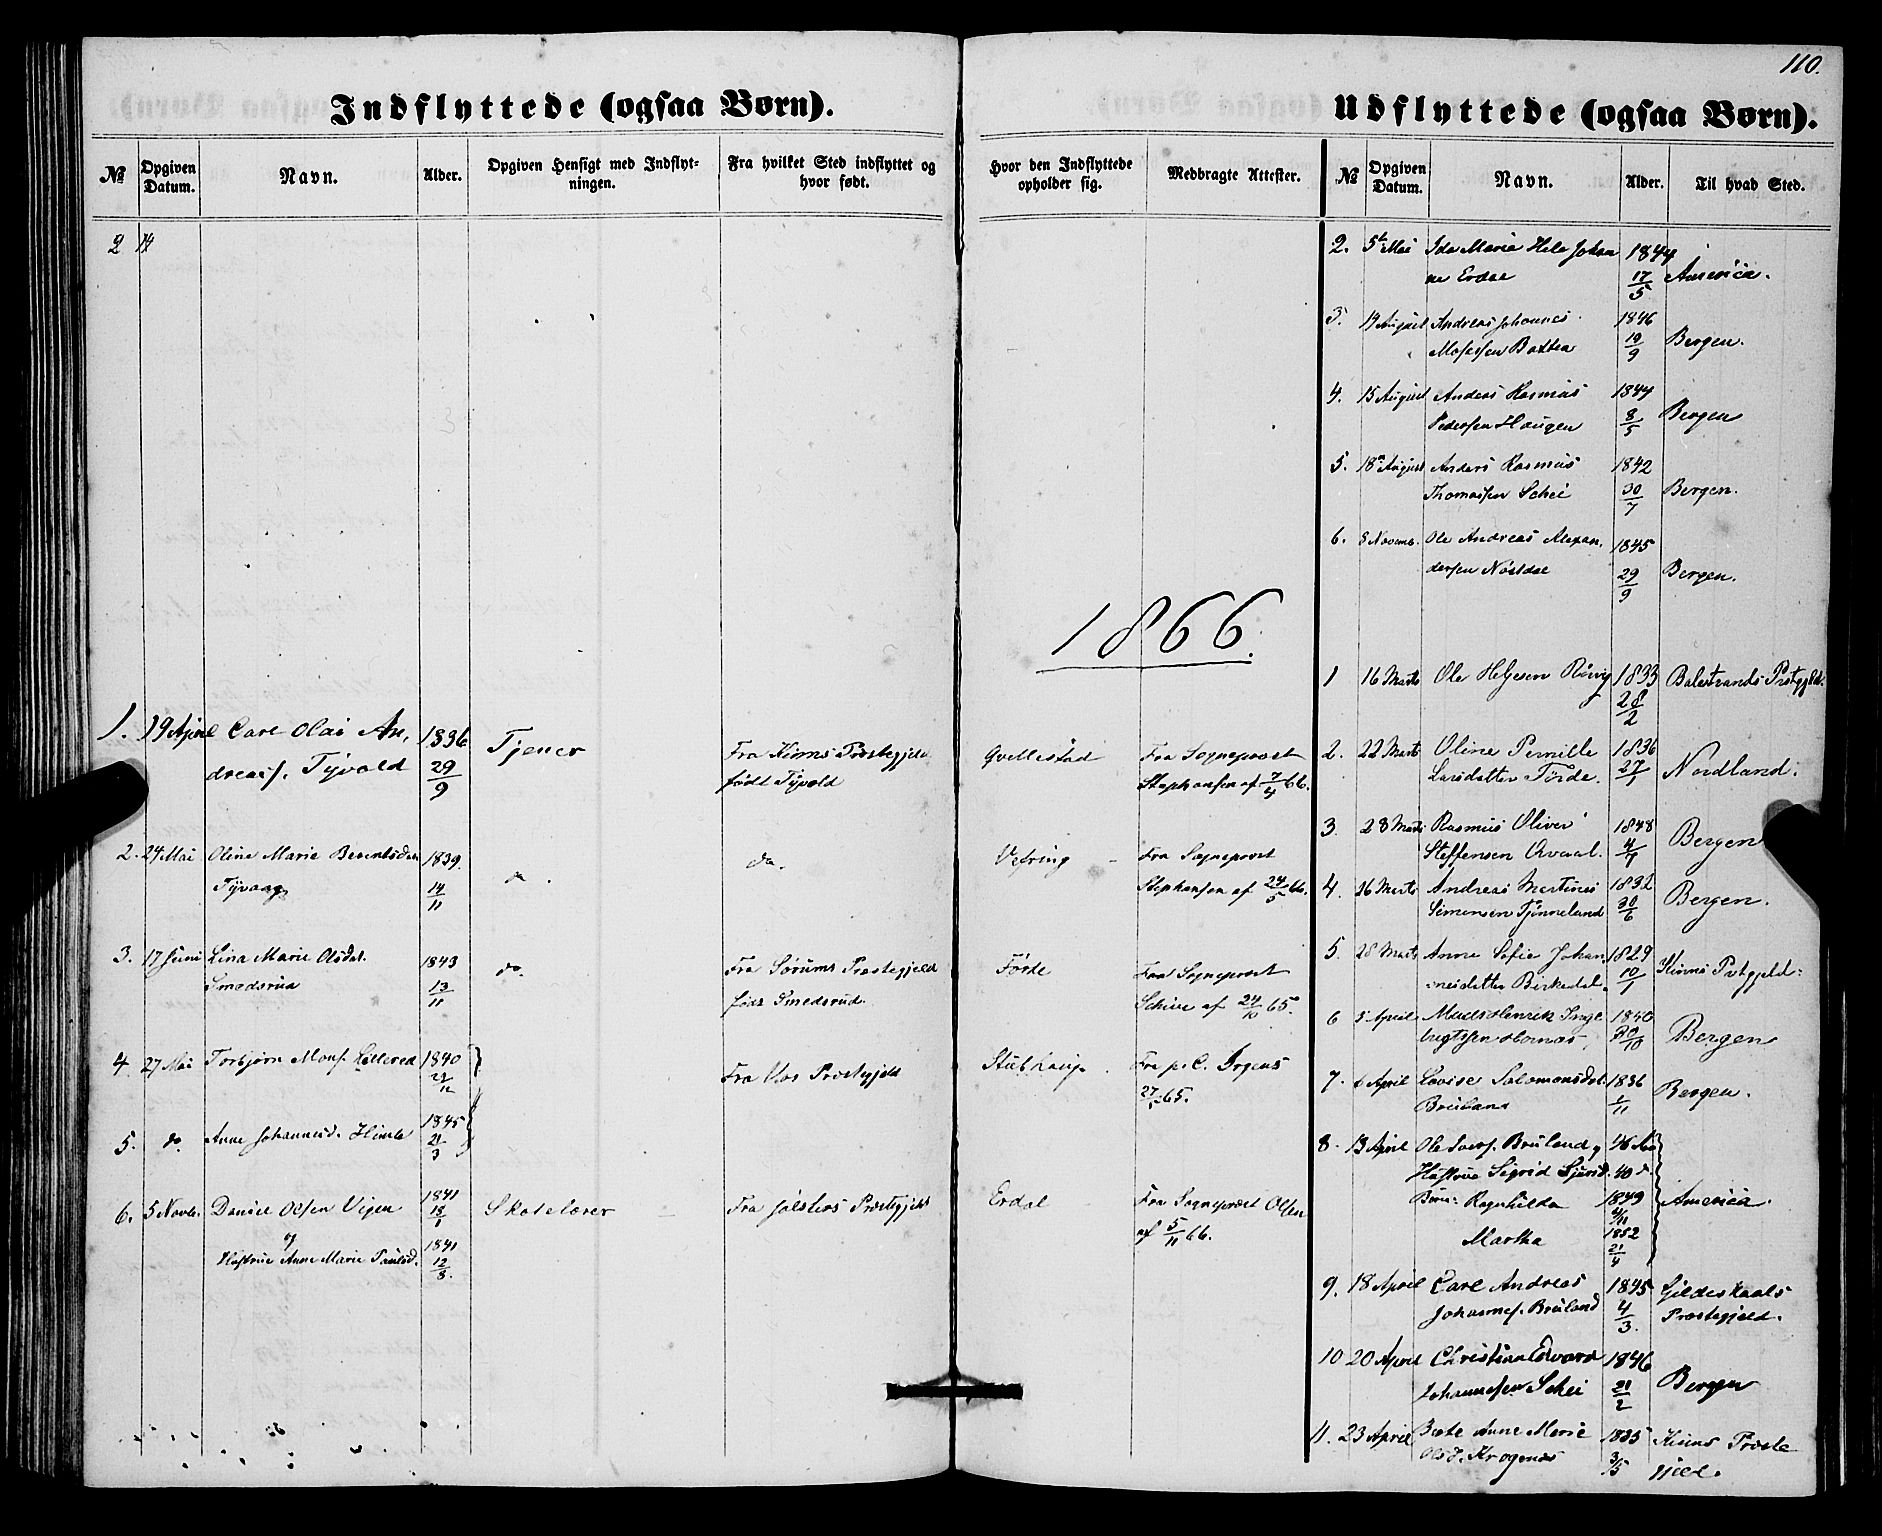 110.
Indflyttede (ogsaa Børn).
№
Opgiven Datum.
Navn.
Alder.
Opgiven Hensigt med Indflyt-
ningen.
Fra hvilket Sted indflyttet og
hvor født.
Hvor den Indflyttede
opholder sig.
Medbragte Attester.
2 14
1866.
1. 19 April Carl Olai An, 1836 Tjener Fra Kinns Præstegjeld Qvellestad Fra Sogneprest
dreasf. Tyvold 29/9 født Tyvold Stephansen af 7/4 66.
2. 24 Mai Oline Marie Berentsdatr 1839. do. Vefring Fra Sogneprest
Tyvaag 14/11 Stephansen af 24/5 66.
3. 17 Juni Lina Marie Olsdat. 1843 do. Fra Sørums Præstegjeld Førde Fra Sogneprest
Smedsrud 13/11 født Smedsrud. af 24/10 65.
4 27 Mai Torbjørn Monf. 1840 Fra Vos Præstegjeld Fra p. C.
65.
5. do. Anne Johannesd. Himle 1845
21/3
6. 5 Novbr. Daniel Olsen Vigen 1841 Skolelærer Fra Jølsters Præstegjeld Erdal Fra Sogneprest Olsen
og 18/1 af 5/11 66.
Hustrue Anne Marie Paulsd. 1841
12/8.
Udflyttede (ogsaa Børn).
№
Opgiven Datum.
Navn.
Alder.
Til hvad Sted.
2. 5te Mai Ida Marie Hele Johan 1844
ne Erdal 17/5 America.
3. 14 August Andreas Johannes 1846
Mosessen Battea 19/9 Bergen.
4. 15 August Anders Rasmus 1844
Pedersen Haugen 8/5 Bergen
5. 18de August Anders Rasmus 1842
Thomassen Schei 30/7 Bergen.
6. 8 Novemb. Ole Andreas Alexan, 1845
dersen Nøstdal 29/9 Bergen.
1 16 Marts Ole Helgesen 1833 Balestrands Prstgjeld.
28/2
2. 22 Marts Oline Pernille 1836
Larsdatter Førde. 27/1 Nordland.
3. 28 Marts Rasmus Oliver 1848
Steffensen Qvaal. Bergen
4. 26 Marts Andreas Martinus 1832
Simonsen Tjønneland 30/6 Bergen.
5. 28 Marts Anne Sofie Johan, 1829
nesdatter Birkedal. 10/1 Kinns Pstgjeld.
6 5 April Mads Henrik Inge 1840
brigtssen Hornæs Bergen
7. 6 April Lovise Salomonsdat. 1836
Bruland /11 Bergen.
8. 13 April Ole Bruland og 46 Aar
Hustrue Sigrid 40 do
Børn: Ragnhilda 1849 America.
4/11
Martha 1852
21/4
9. 18 April Carl Andreas 1845 Gildeskaals
Johannesf. Bruland 4/3. Præstegjeld.
10 20 April Christian Edvard 1846
Johannessen Schei 21/2 Bergen
11. 23 April Anne Marie 1835 Kinns Præste
Olsd. Krogenæs 3/5 gjeld.